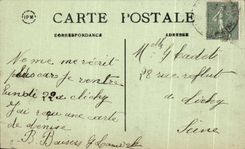 CARTE POSTALE
CORRESPONDANCE
ADRESSE
Ne me récrit
plus car je rentre
Lundi 22 a Clichy
J'ai reçu une carte
de Denise
B. Baisers G
Melle G Cadot
28 rue
Clichy
Seine